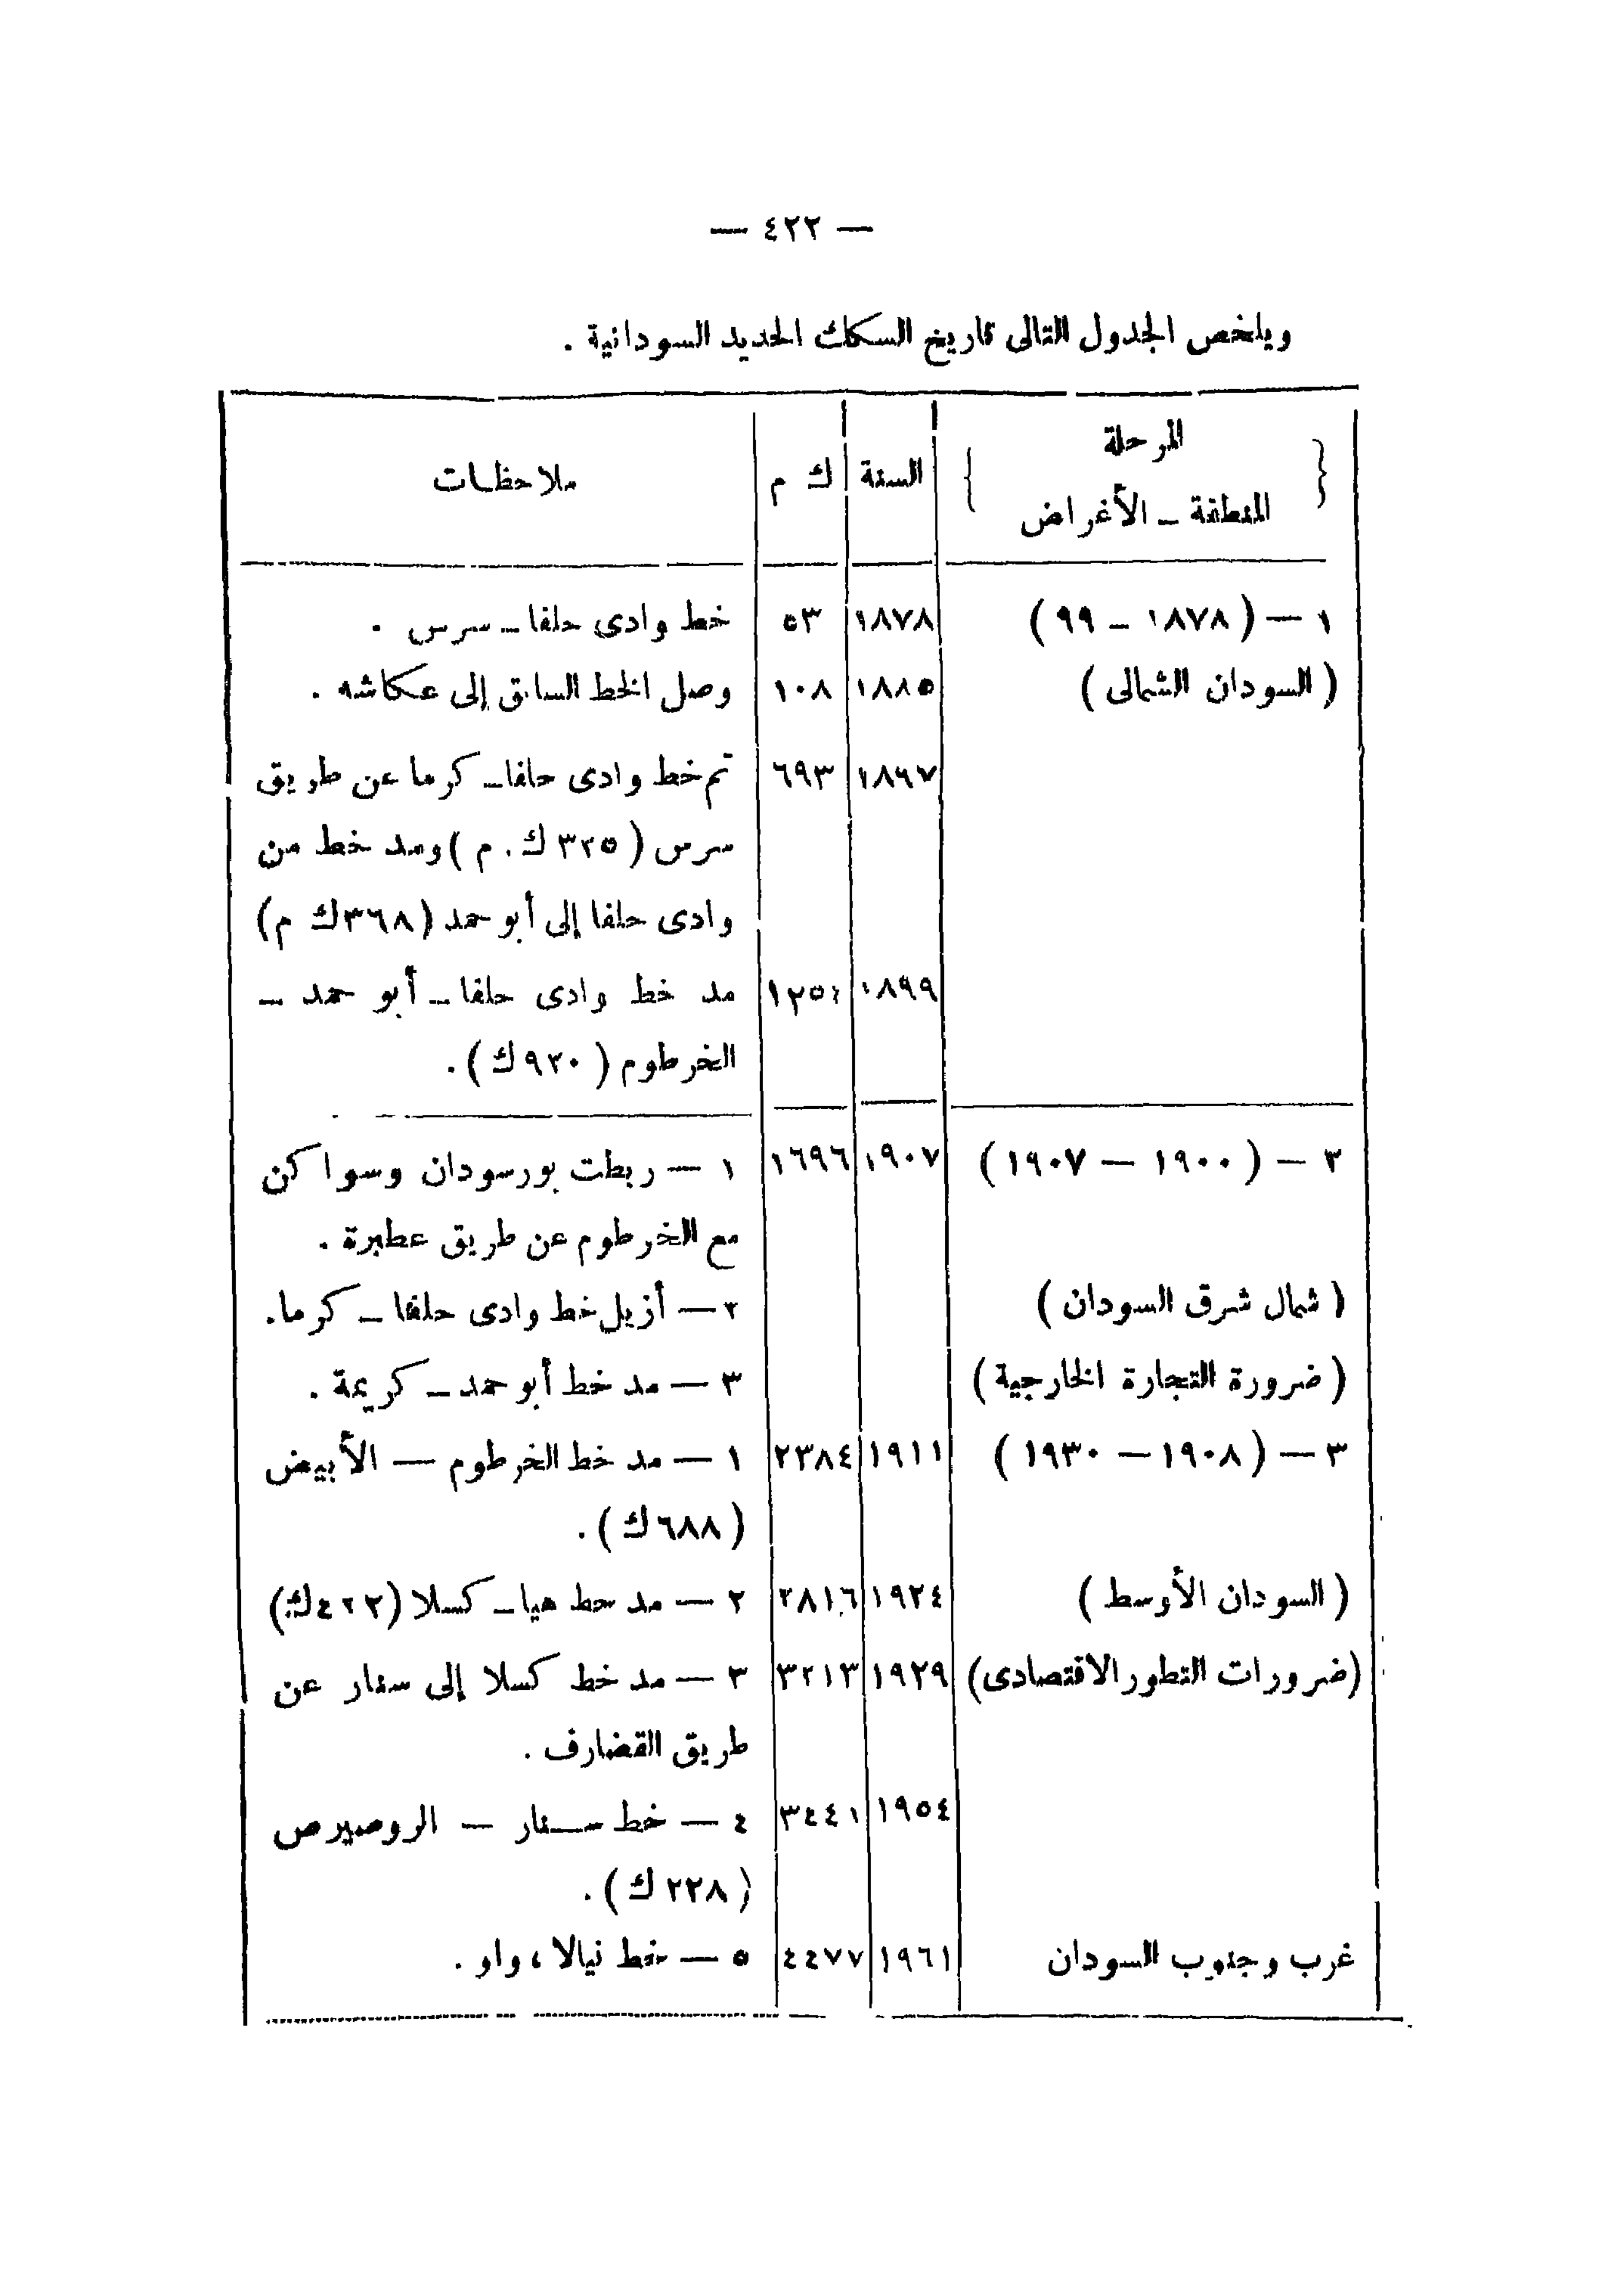 — ٤٢٢ —
ويلخص الجدول التالى تاريخ السكك الحديد السودانية .
المرحلة
المنطقة – الأغراض
السنة
ك م
ملاحظات
١ — ( ١٨٧٨ – ٩٩ ) ١٨٧٨ ٥٣ خط وادى حلفا – سرس .
( السودان الشمالى ) ١٨٨٥ ١٠٨ وصل الخط السابق إلى عكاشه .
١٨٩٧ ٦٩٣ تم خط وادى حلفا – كرما عن طريق
سرس ( ٣٢٥ ك . م ) ومد خط من
وادى حلفا إلى أبو حمد ( ٣٦٨ ك م )
١٨٩٩ مد خط وادى حلفا – أبو حمد –
الخرطوم ( ٩٣٠ ك ) .
٢ — ( ١٩٠٠ — ١٩٠٧ ) ١٩٠٧ ١٦٩٦ ١ — ربطت بورسودان وسواكن
مع الخرطوم عن طريق عطبرة .
( شمال شرق السودان ) ٢ — أزيل خط وادى حلفا – كرما .
( ضرورة التجارة الخارجية ) ٣ — مد خط أبو حمد – كريمة .
٣ — ( ١٩٠٨ — ١٩٣٠ ) ١٩١١ ٢٣٨٤ ١ — مد خط الخرطوم — الأبيض
( ٦٨٨ ك ) .
( السودان الأوسط ) ١٩٢٤ ٢٨١٦ ٢ — مد خط هيا – كسلا ( ك )
( ضرورات التطور الاقتصادى ) ١٩٢٩ ٣٢١٣ ٣ — مد خط كسلا إلى سنار عن
طريق القضارف .
١٩٥٤ ٣٤٤١ ٤ — خط سنار — الروصيرص
( ٢٢٨ ك ) .
غرب وجنوب السودان ١٩٦١ ٤٤٧٧ ٥ — خط نيالا ، واو .